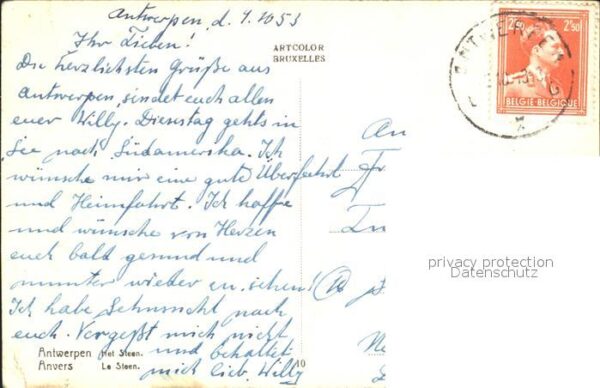 Antwerpen, d. 4.10 53
Ihr Lieben!
ARTCOLOR
BRUXELLES
Die herzlichsten Grüße aus
Antwerpen, sendet euch allen
euer Willy. Dienstag gehts in
See nach Südamerika. Ich
wünsche mir eine gute Überfahrt
und Heimfahrt. Ich hoffe
und wünsche von Herzen
euch bald gesund und
munter wieder zu sehen!
Ich habe Sehnsucht nach
euch. Vergeßt mich nicht
und behaltet
mich lieb. Willy
Antwerpen Het Steen.
Anvers Le Steen.
10
2F50 2F50
BELGIE BELGIQUE
ANTWERPEN
An
privacy protection
Datenschutz